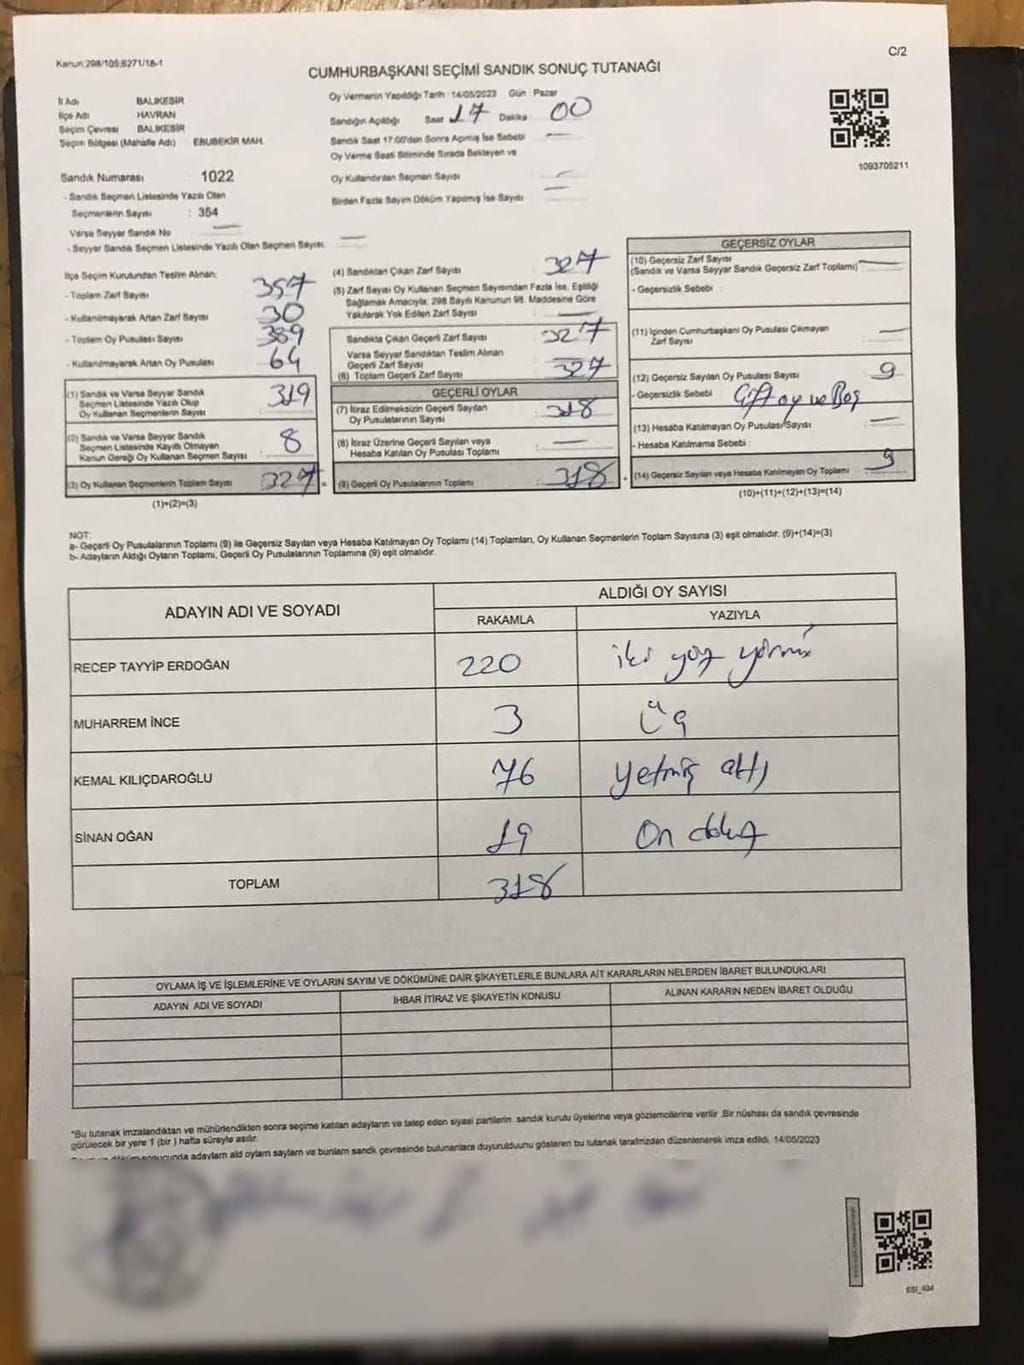 Kanun:298/105;6271/18-1
C/2
CUMHURBAŞKANI SEÇİMİ SANDIK SONUÇ TUTANAĞI
İl Adı BALIKESİR
İlçe Adı HAVRAN
Seçim Çevresi BALIKESİR
Seçim Bölgesi (Mahalle Adı) EBUBEKİR MAH.
Sandık Numarası : 1022
- Sandık Seçmen Listesinde Yazılı Olan
Seçmenlerin Sayısı : 354
Varsa Seyyar Sandık No
- Seyyar Sandık Seçmen Listesinde Yazılı Olan Seçmen Sayısı
Oy Vermenin Yapıldığı Tarih : 14/05/2023 Gün : Pazar
Sandığın Açıldığı Saat 17 Dakika : 00
Sandık Saat 17:00'den Sonra Açılmış İse Sebebi
Oy Verme Saati Bitiminde Sırada Bekleyen ve
Oy Kullandırılan Seçmen Sayısı
Birden Fazla Sayım Döküm Yapılmış İse Sayısı
1093705211
İlçe Seçim Kurulundan Teslim Alınan;
- Toplam Zarf Sayısı 357
- Kullanılmayarak Artan Zarf Sayısı 30
- Toplam Oy Pusulası Sayısı 389
- Kullanılmayarak Artan Oy Pusulası 64
(1) Sandık ve Varsa Seyyar Sandık
Seçmen Listesinde Yazılı Olup
Oy Kullanan Seçmenlerin Sayısı 319
(2) Sandık ve Varsa Seyyar Sandık
Seçmen Listesinde Kayıtlı Olmayan
Kanun Gereği Oy Kullanan Seçmen Sayısı 8
(3) Oy Kullanan Seçmenlerin Toplam Sayısı 327 =
(1)+(2)=(3)
(4) Sandıktan Çıkan Zarf Sayısı 327
(5) Zarf Sayısı Oy Kullanan Seçmen Sayısından Fazla İse, Eşitliği
Sağlamak Amacıyla, 298 Sayılı Kanunun 98. Maddesine Göre
Yakılarak Yok Edilen Zarf Sayısı
Sandıkta Çıkan Geçerli Zarf Sayısı 327
Varsa Seyyar Sandıktan Teslim Alınan
Geçerli Zarf Sayısı
(6) Toplam Geçerli Zarf Sayısı 327
GEÇERLİ OYLAR
(7) İtiraz Edilmeksizin Geçerli Sayılan
Oy Pusulalarının Sayısı 318
(8) İtiraz Üzerine Geçerli Sayılan veya
Hesaba Katılan Oy Pusulası Toplamı
(9) Geçerli Oy Pusulalarının Toplamı : 318 +
GEÇERSİZ OYLAR
(10) Geçersiz Zarf Sayısı
(Sandık ve Varsa Seyyar Sandık Geçersiz Zarf Toplamı)
- Geçersizlik Sebebi :
(11) İçinden Cumhurbaşkanı Oy Pusulası Çıkmayan
Zarf Sayısı
(12) Geçersiz Sayılan Oy Pusulası Sayısı 9
- Geçersizlik Sebebi Çift oy ve Boş
(13) Hesaba Katılmayan Oy Pusulası Sayısı
- Hesaba Katılmama Sebebi :
(14) Geçersiz Sayılan veya Hesaba Katılmayan Oy Toplamı 9
(10)+(11)+(12)+(13)=(14)
NOT:
a- Geçerli Oy Pusulalarının Toplamı (9) ile Geçersiz Sayılan veya Hesaba Katılmayan Oy Toplamı (14) Toplamları, Oy Kullanan Seçmenlerin Toplam Sayısına (3) eşit olmalıdır. (9)+(14)=(3)
b- Adayların Aldığı Oyların Toplamı, Geçerli Oy Pusulalarının Toplamına (9) eşit olmalıdır.
ADAYIN ADI VE SOYADI
ALDIĞI OY SAYISI
RAKAMLA YAZIYLA
RECEP TAYYİP ERDOĞAN 220 iki yüz yirmi
MUHARREM İNCE 3 üç
KEMAL KILIÇDAROĞLU 76 yetmiş altı
SİNAN OĞAN 19 On dokuz
TOPLAM 318
OYLAMA İŞ VE İŞLEMLERİNE VE OYLARIN SAYIM VE DÖKÜMÜNE DAİR ŞİKAYETLERLE BUNLARA AİT KARARLARIN NELERDEN İBARET BULUNDUKLARI
ADAYIN ADI VE SOYADI İHBAR İTİRAZ VE ŞİKAYETİN KONUSU ALINAN KARARIN NEDEN İBARET OLDUĞU
*Bu tutanak imzalandıktan ve mühürlendikten sonra seçime katılan adayların ve talep eden siyasi partilerin sandık kurulu üyelerine veya gözlemcilerine verilir .Bir nüshası da sandık çevresinde
görülecek bir yere 1 (bir ) hafta süreyle asılır.
adayların ald oyların sayıların ve bunların sandk çevresinde bulunanlara duyurulduunu gösteren bu tutanak tarafımızdan düzenlenerek imza edildi. 14/05/2023